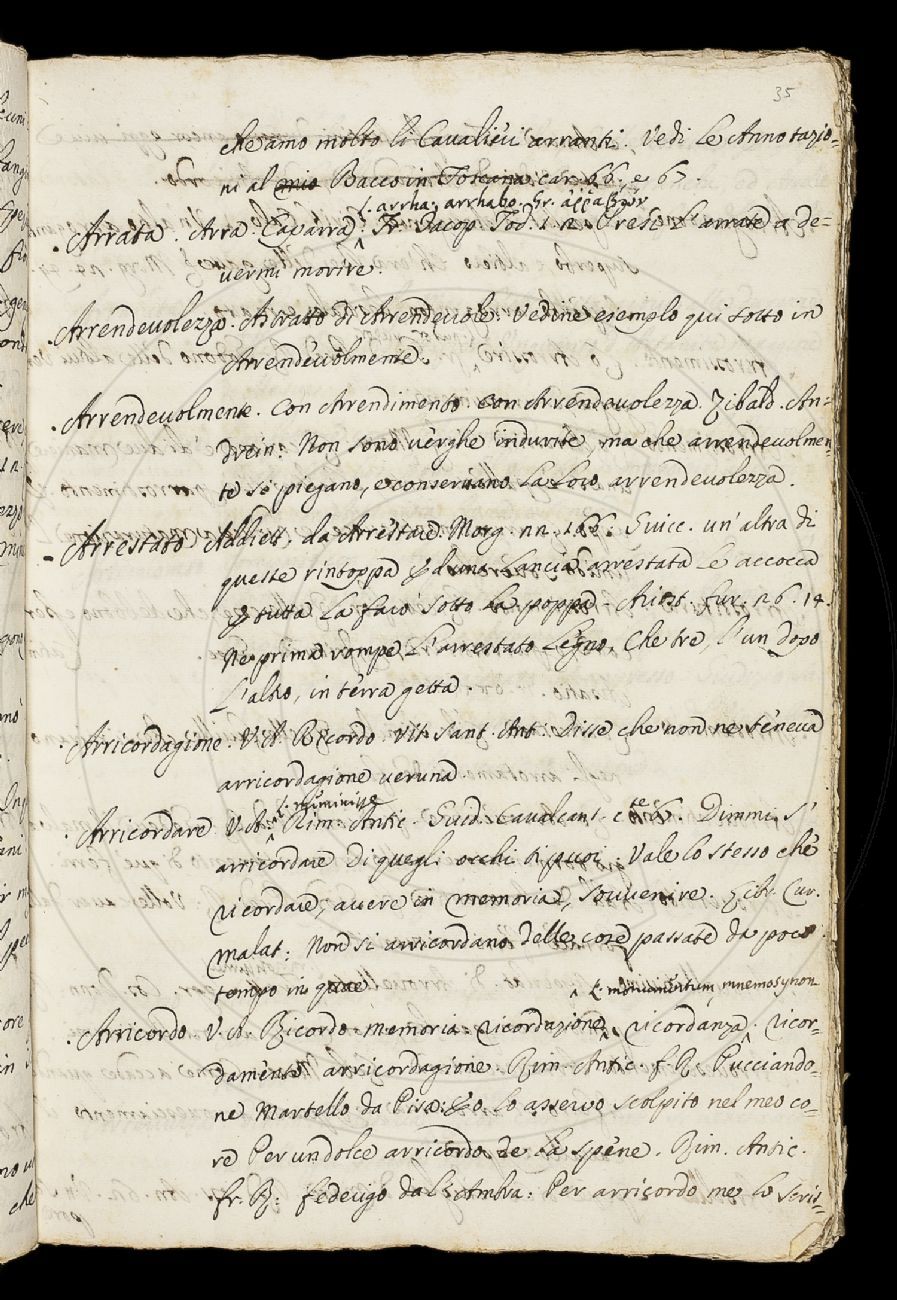 35
che amo molto li Cavalieri arranti. Vedi le Annotazio-
ni al mio Bacco in Toscana car. 66. e 67.
L. arrha, arrhabo. Gr. ἀῤῥαβών
Arrata. Arra. Caparra. Fr. Jacop. Tod. 1. 2. Prese l'arrate a de-
vermi morire.
Arrendevolezza. Astratto di Arrendevole. Vedine esemplo qui sotto in
Arrendevolmente.
Arrendevolmente. Con Arrendimento. Con Arrendevolezza. Zibald. An-
drein: Non sono verghe indurite, ma che arrendevolmen-
te se piegano, e conservano la loro arrendevolezza.
Arrestato Addiett. da Arrestare. Morg. 22. 166: E uicc. un'altra di
queste rintoppa E d'una lancia arrestata le accocca
E tutta la facò sotto la poppa - Ariost. Fur. 26. 14.
Ne prima rompe l'arrestato legno, Che tre, l'un dopo
l'altro, in terra getta.
Arricordagione. V. A. Ricordo. Vit. Sant. Ant. Disse che non ne teneva
arricordagione veruna.
L. reminisce
Arricordare V. A. Rim. Antic. Guid. Cavalcant. cte 6. Dimmi s'
arricordare di quegli occhi ti puoi: Vale lo stesso che
ricordare; avere in memoria, Souvenire. Libr. Cur.
malat: Non si arricordano delle cose passate da poco
tempo in quae
L. monumentum, mnemosynon
Arricordo V. A. Ricordo. memoria. ricordazione, ricordanza. ricor-
damento arricordagione. Rim. Antic. f. R. Pucciando-
ne Martello da Pisa: Eo lo asservo scolpito nel meo co-
re Per un dolce arricordo de la spene. Rim. Antic.
fr. R: Federigo dall'Ambra: Per arricordo me lo scris-